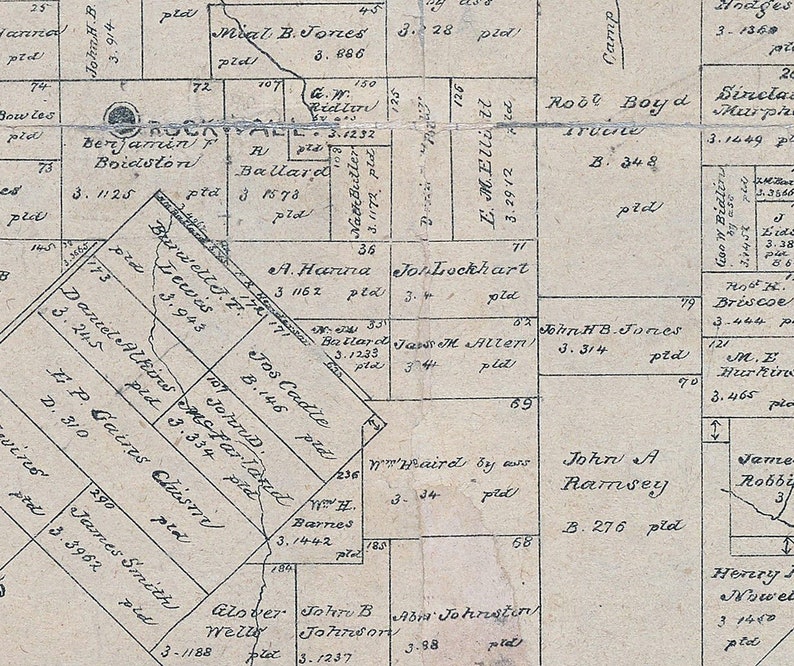 25
Hanna
pld
John H. B.
3. 914
pld
45
Mial B. Jones
3. 886
pld
by ass
3. 28 pld
Camp
Hodges
3. 1368
pld
74
Bowles
pld
72
ROCKWALL.
Benjamin F
Boidston
3. 1125 pld
107
R
Ballard
3. 1573
pld
150
G. W.
Ridlin
by ass
3. 1232
pld
103
Nath Butler
3. 1172 pld
125
126
E. M. Elliott
3. 2912 pld
Robt Boyd
Irvine
B. 348
pld
Sinclair
Murphy
3. 1449 pld
73
pld
145
Geo W Ridlin
by ass
3. 4454 pld
J
Eids
3. 38
pld
B 6
3. 3665
173
pld
Bidwell J. T.
Lewas
3. 943
172
171
36
A. Hanna
3 1162 pld
71
Jos Lockhart
3. 4 pld
79
John H B. Jones
3. 314 pld
Robt H.
Briscoe
3. 444 pld
Daniel Atkins
3. 245
pld
35
Ballard
3. 1233
pld
52
Jass M Allen
3 4 pld
121
M. E
Hurkins
3. 465 pld
E P. Gains Chism
D. 310
pld
Jos Cadle
B. 146
pld
107
John D.
McFarland
3. 334
pld
69
Wm H Laird by ass
3. 34 pld
70
John A
Ramsey
B. 276 pld
James
Robbi
3
pld
290
James Smith
3. 3962
pld
236
Wm H.
Barnes
3. 1442
pld
185
184
Glover
Wells
3-1188 pld
John B
Johnson
3-1237
68
Abnr Johnston
3. 88 pld
Henry
Nowel
3 1450
pld